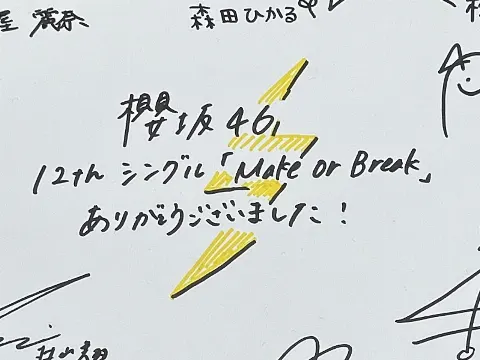 屋 麗奈
森田ひかる
櫻坂46
12th シングル「Make or Break」
ありがとうございました！